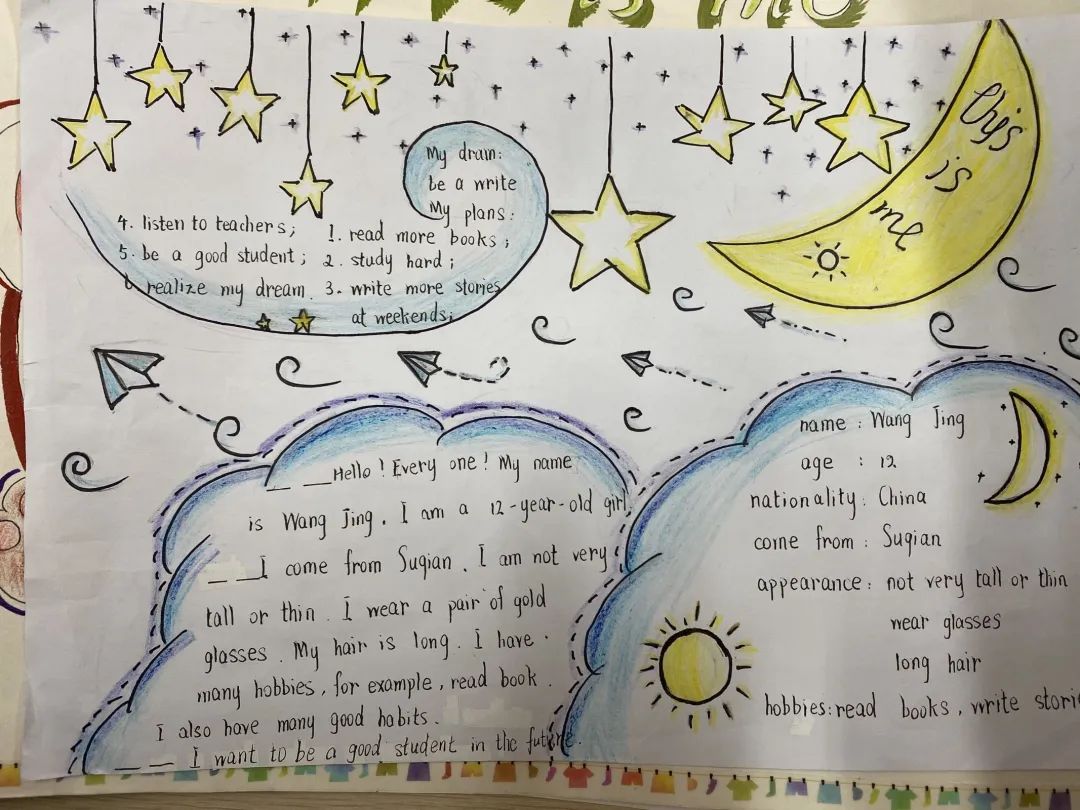 is me
this
is
me
My dram:
be a write
My plans:
1. read more books;
2. study hard;
3. write more stories
at weekends;
4. listen to teachers;
5. be a good student;
realize my dream.
Hello! Every one! My name
is Wang Jing. I am a 12-year-old girl.
I come from Suqian. I am not very
tall or thin. I wear a pair of gold
glasses. My hair is long. I have
many hobbies, for example, read book.
I also have many good habits.
I want to be a good student in the future.
name: Wang Jing
age: 12
nationality: China
come from: Suqian
appearance: not very tall or thin
wear glasses
long hair
hobbies: read books, write